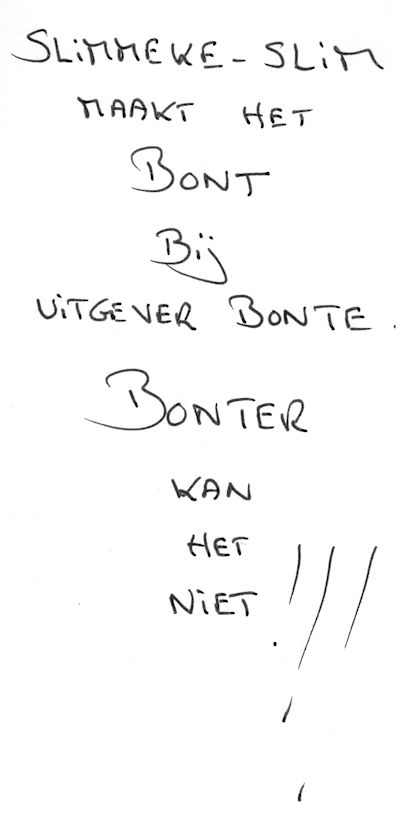 SLiMMEKE-SLiM
MAAKT HET
BONT
Bij
UiTGEVER BONTE.
BONTER
KAN
HET
NiET!!!